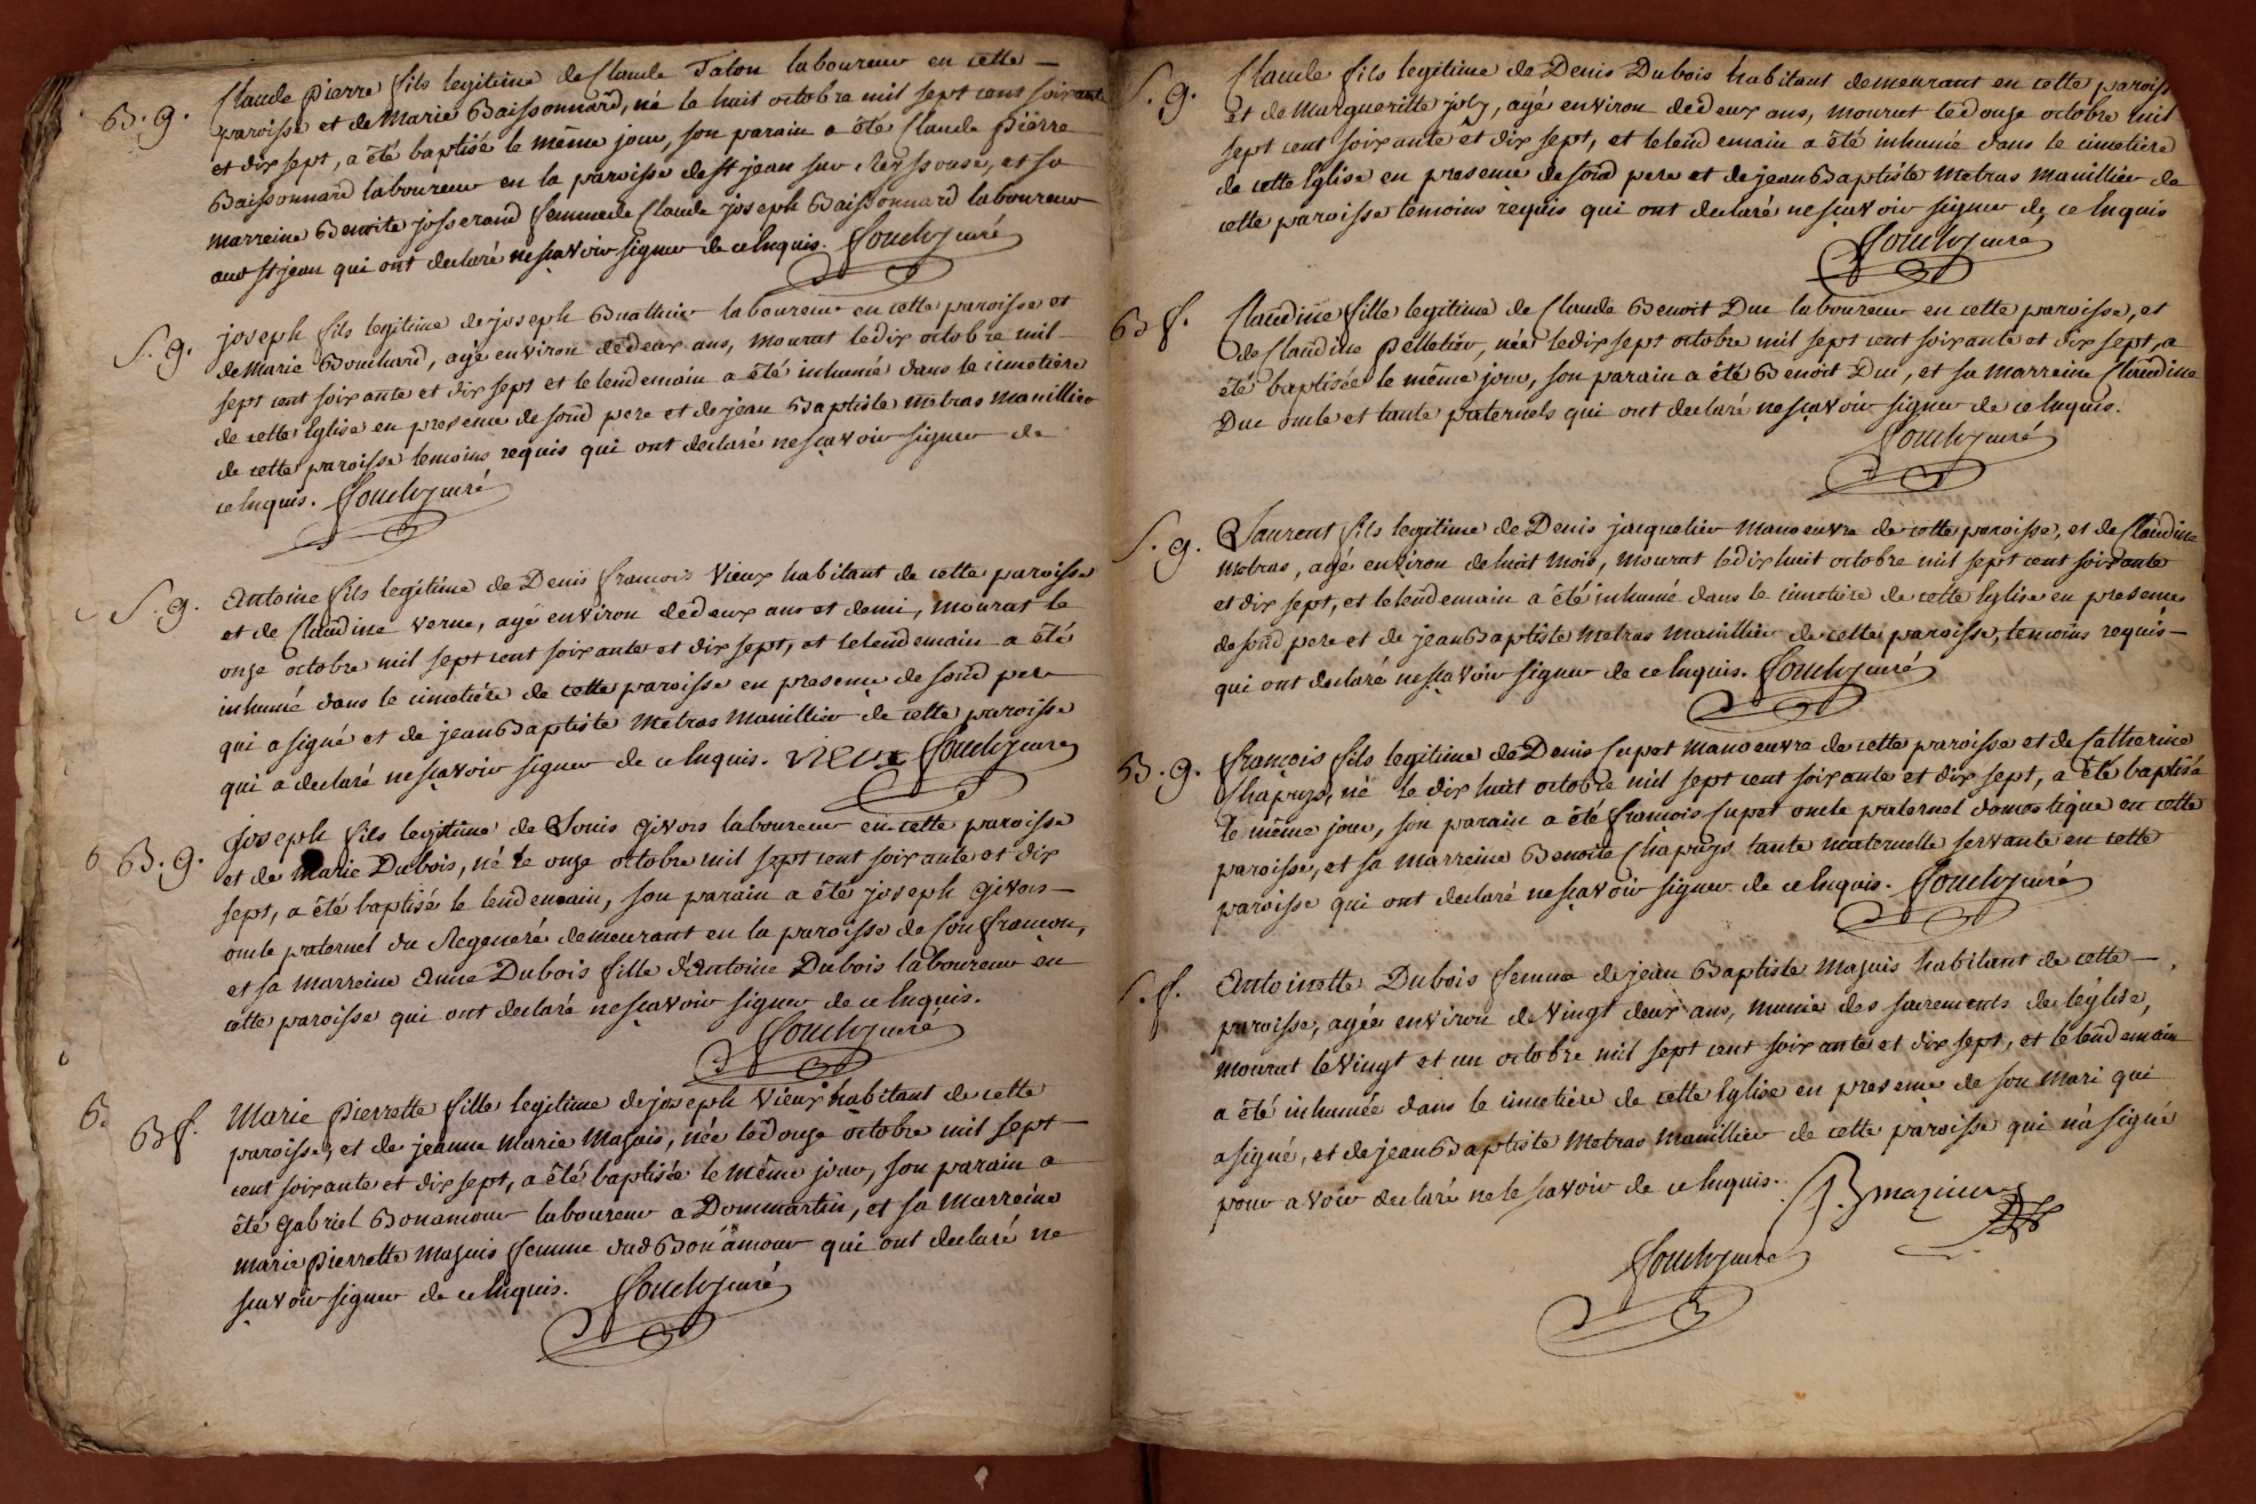 B. g. Claude pierre fils legitime de Claude Talon laboureur en cette
paroisse et de Marie Baissonnard, né le huit octobre mil sept cent soixante
et dix sept, a été baptisé le même jour, son parain a été Claude pierre
Baissonnard laboureur en la paroisse de st jean sur Reyssouse, et sa
marreine Benoite josserand femme de Claude joseph Baissonnard laboureur
aud st jean qui ont declaré ne sçavoir signer de ce Enquis. curé
S. g. joseph fils legitime de joseph laboureur en cette paroisse et
de Marie Bouchard, agé environ de deux ans, mourut le dix octobre mil
sept cent soixante et dix sept et le lendemain a été inhumé dans le cimetière
de cette Eglise en presence de sond pere et de jean Baptiste Metras Manillier
de cette paroisse temoins requis qui ont declaré ne sçavoir signer de
ce Enquis. curé
S. g. Antoine fils legitime de Denis françois Vieux habitant de cette paroisse
et de Claudine Verne, agé environ de deux ans et demi, mourut le
onze octobre mil sept cent soixante et dix sept, et le lendemain a été
inhumé dans le cimetière de cette paroisse en presence de sond pere
qui a signé et de jean Baptiste Metras Manillier de cette paroisse
qui a declaré ne sçavoir signer de ce Enquis. vieux curé
6 B. g. joseph fils legitime de Louis givors laboureur en cette paroisse
et de Marie Dubois, né le onze octobre mil sept cent soixante et dix
sept, a été baptisé le lendemain, son parain a été joseph givors
oncle paternel du Regeneré demeurant en la paroisse de Confrançon,
et sa marreine Anne Dubois fille d'Antoine Dubois laboureur en
cette paroisse qui ont declaré ne sçavoir signer de ce Enquis.
curé
6. B f. Marie pierrette fille legitime de joseph Vieux habitant de cette
paroisse, et de jeanne Marie Mazuis, née le douze octobre mil sept
cent soixante et dix sept, a été baptisée le même jour, son parain a
été gabriel Bonamour laboureur a Dommartin, et sa marreine
marie pierrette Mazuis femme dud Bonamour qui ont declaré ne
sçavoir signer de ce Enquis. curé
S. g. Claude fils legitime de Denis Dubois habitant demeurant en cette paroisse
et de Margueritte joly, agé environ de deux ans, mourut le douze octobre mil
sept cent soixante et dix sept, et le lendemain a été inhumé dans le cimetière
de cette Eglise en presence de sond pere et de jean Baptiste Metras Manillier de
cette paroisse temoins requis qui ont declaré ne sçavoir signer de ce Enquis
curé
B f. Claudine fille legitime de Claude Benoit Duc laboureur en cette paroisse, et
de Claudine Pelletier, née le dix sept octobre mil sept cent soixante et dix sept, a
été baptisée le même jour, son parain a été Benoit Duc, et sa marreine Claudine
Duc oncle et tante paternels qui ont declaré ne sçavoir signer de ce Enquis.
curé
S. g. Laurent fils legitime de Denis jacquelier manoeuvre de cette paroisse, et de Claudine
Metras, agé environ de huit mois, mourut le dix huit octobre mil sept cent soixante
et dix sept, et le lendemain a été inhumé dans le cimetière de cette Eglise en presence
de sond pere et de jean Baptiste Metras Manillier de cette paroisse, temoins requis
qui ont declaré ne sçavoir signer de ce Enquis. curé
B. g. françois fils legitime de Denis Cupet manoeuvre de cette paroisse et de Catherine
Chapuys, né le dix huit octobre mil sept cent soixante et dix sept, a été baptisé
le même jour, son parain a été françois Cupet oncle paternel domestique en cette
paroisse, et sa marreine Benoite Chapuys tante maternelle servante en cette
paroisse qui ont declaré ne sçavoir signer de ce Enquis. curé
S. f. Antoinette Dubois femme de jean Baptiste Mazuis habitant de cette
paroisse, agée environ de vingt deux ans, munie des sacrements de l'église,
mourut le vingt et un octobre mil sept cent soixante et dix sept, et le lendemain
a été inhumée dans le cimetière de cette Eglise en presence de son mari qui
a signé, et de jean Baptiste Metras Manillier de cette paroisse qui n'a signé
pour avoir declaré ne le sçavoir de ce Enquis.
curé